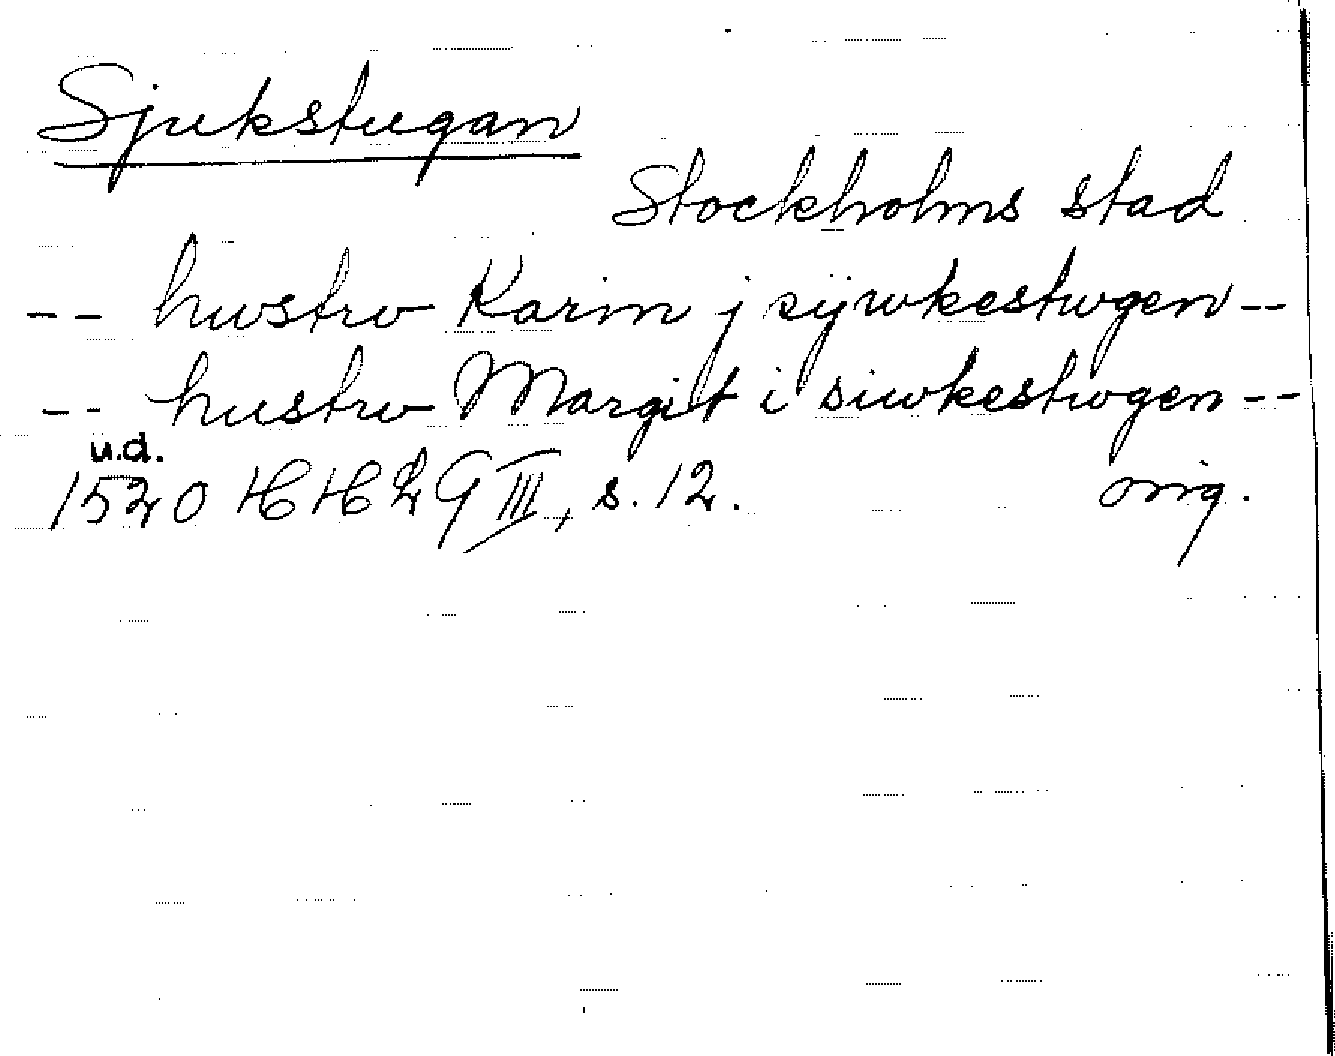 Sjukstugan
Stockholms stad
-- hwstrw Karin j sijwkestwgen --
-- hustrw Margit i siwkestwgen --
u.d.
1520 HH 2 G III, s. 12. orig.